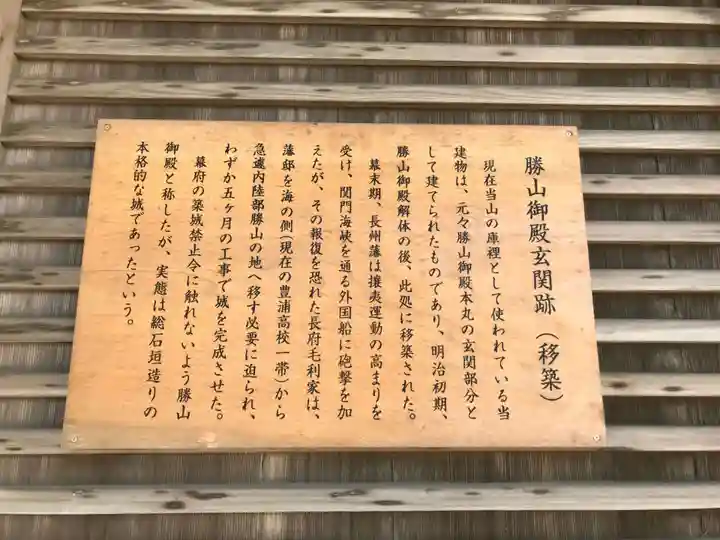 勝山御殿玄関跡（移築）
現在当山の庫裡として使われている当
建物は、元々勝山御殿本丸の玄関部分と
して建てられたものであり、明治初期、
勝山御殿解体の後、此処に移築された。
幕末期、長州藩は攘夷運動の高まりを
受け、関門海峡を通る外国船に砲撃を加
えたが、その報復を恐れた長府毛利家は、
藩邸を海の側（現在の豊浦高校一帯）から
急遽内陸部勝山の地へ移す必要に迫られ、
わずか五ヶ月の工事で城を完成させた。
幕府の築城禁止令に触れないよう勝山
御殿と称したが、実態は総石垣造りの
本格的な城であったという。